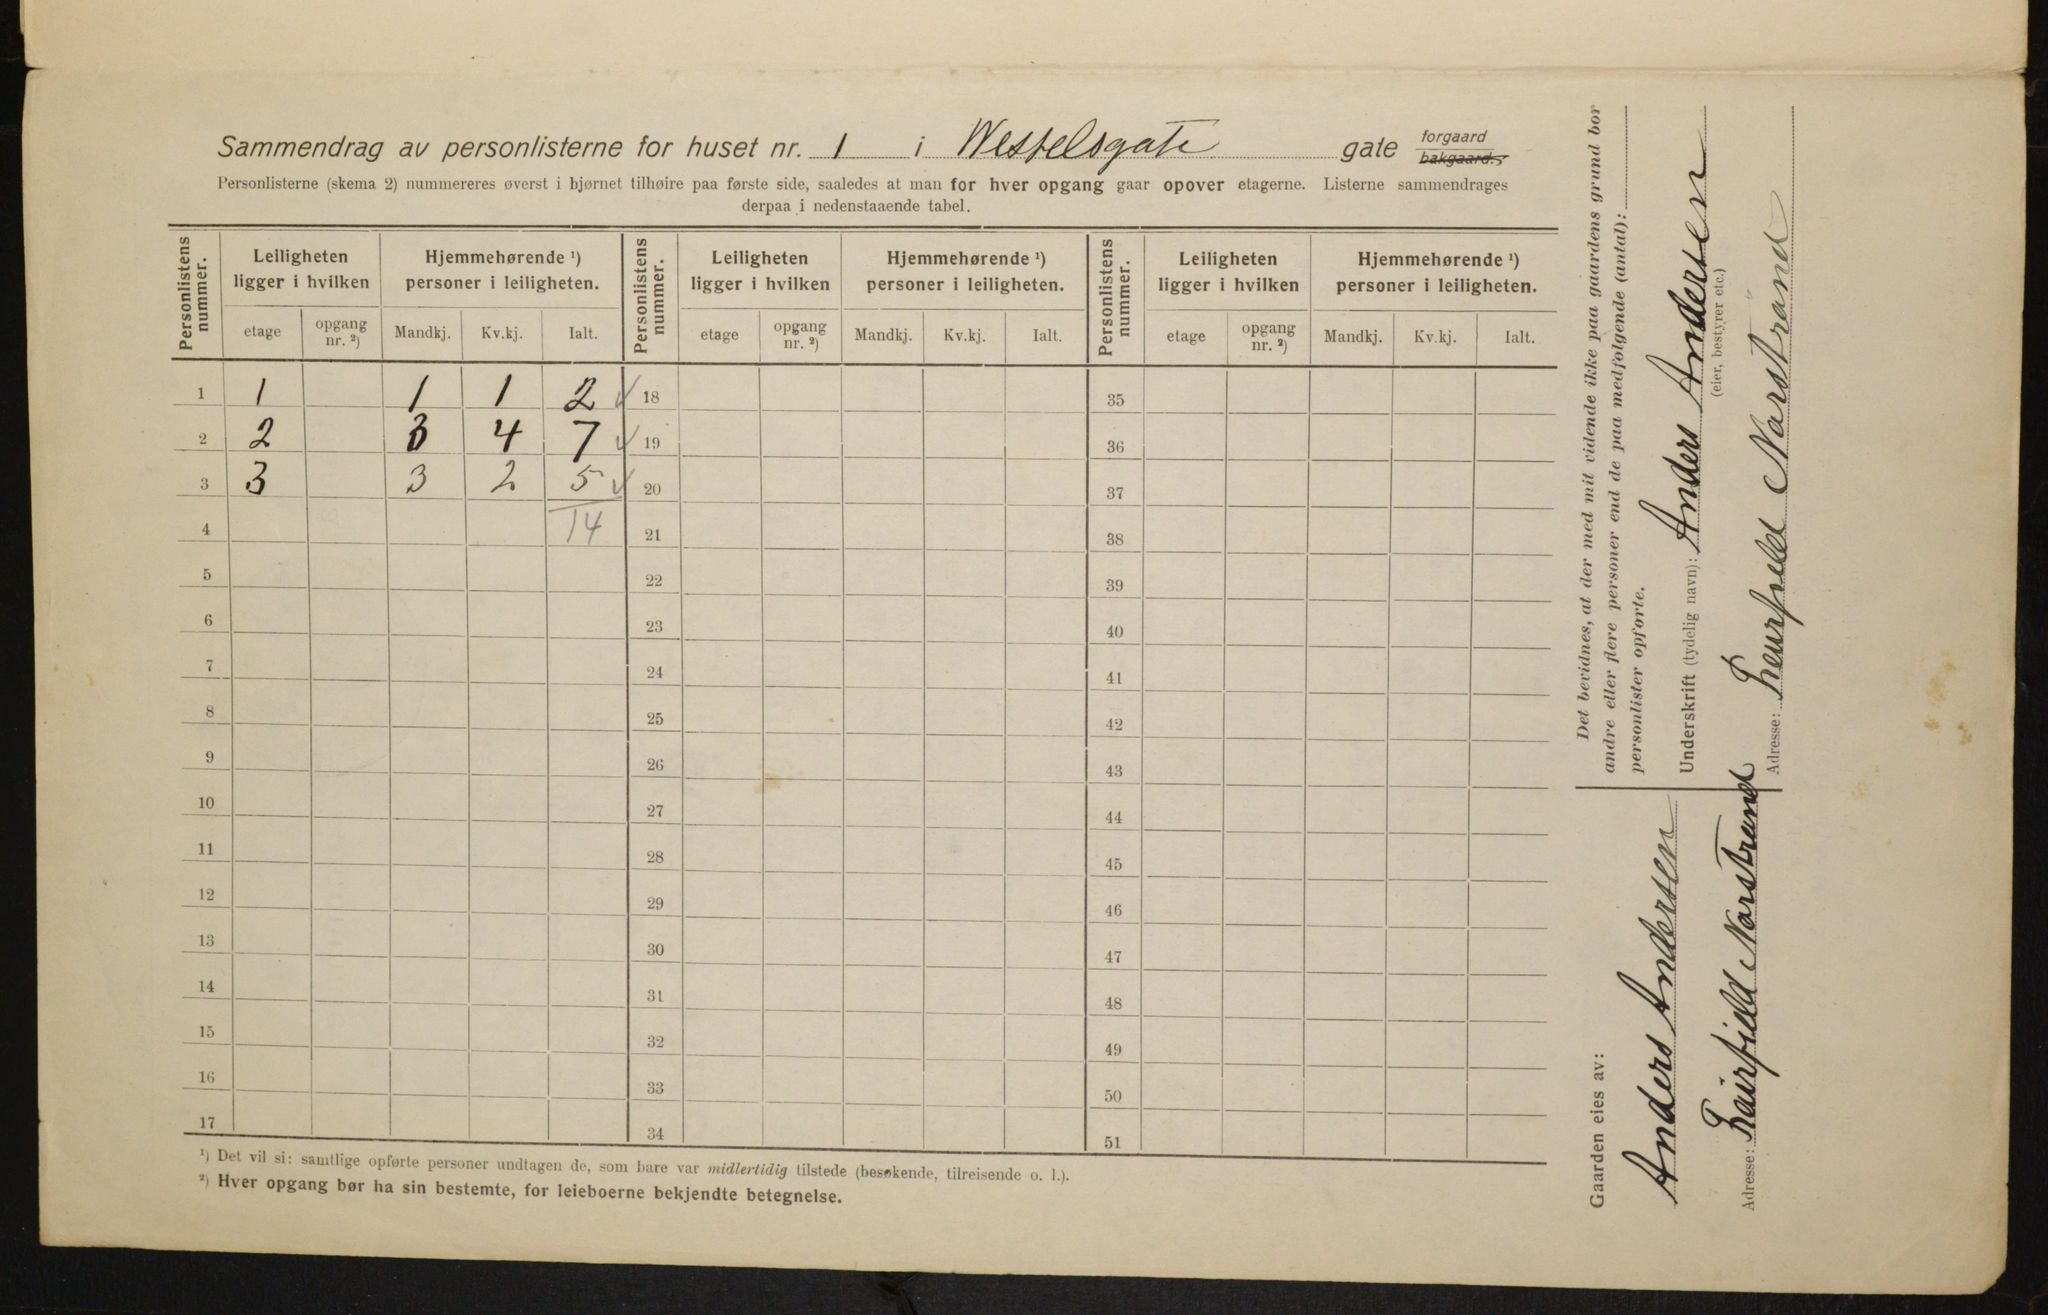 Sammendrag av personlisterne for huset nr. 1 i Wesselsgate gate forgaard bakgaard.
Personlisterne (skema 2) nummereres øverst i hjørnet tilhøire paa første side, saaledes at man for hver opgang gaar opover etagerne. Listerne sammendrages
derpaa i nedenstaaende tabel.
Personlistens nummer. Leiligheten ligger i hvilken Hjemmehørende ¹) personer i leiligheten. Personlistens nummer. Leiligheten ligger i hvilken Hjemmehørende ¹) personer i leiligheten. Personlistens nummer. Leiligheten ligger i hvilken Hjemmehørende ¹) personer i leiligheten.
etage opgang nr. ²) Mandkj. Kv.kj. Ialt. etage opgang nr. ²) Mandkj. Kv.kj. Ialt. etage opgang nr. ²) Mandkj. Kv.kj. Ialt.
1 1 1 1 2 ✓ 18 35
2 2 3 4 7 ✓ 19 36
3 3 3 2 5 ✓ 20 37
4 14 21 38
5 22 39
6 23 40
7 24 41
8 25 42
9 26 43
10 27 44
11 28 45
12 29 46
13 30 47
14 31 48
15 32 49
16 33 50
17 34 51
¹) Det vil si: samtlige opførte personer undtagen de, som bare var midlertidig tilstede (besøkende, tilreisende o. l.).
²) Hver opgang bør ha sin bestemte, for leieboerne bekjendte betegnelse.
Gaarden eies av:
Anders Andersen
Adresse: Fairfield Norstrand
Det bevidnes, at der med mit vidende ikke paa gaardens grund bor
andre eller flere personer end de paa medfølgende (antal):
personlister opførte.
Underskrift (tydelig navn): Anders Andersen
(eier, bestyrer etc.)
Adresse: Norstrand